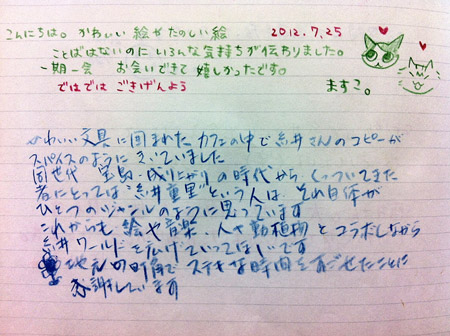 こんにちは。かわいい絵やたのしい絵 2012.7.25
ことばはないのにいろんな気持ちが伝わりました。
一期一会 お会いできて嬉しかったです。
ではでは ごきげんよう ますこ。
かわいい文具に囲まれたカフェの中で糸井さんのコピーが
スパイスのようにきいていました
団世代 宝島・成り上がりの時代からくっついてきた
者にとっては"糸井重里"という人は、それ自体が
ひとつのジャンルのように思っています
これからも絵や音楽、人や動植物とコラボしながら
糸井ワールドを広げていってほしいです
地元の町角でステキな時間をすごせたことに
感謝しています